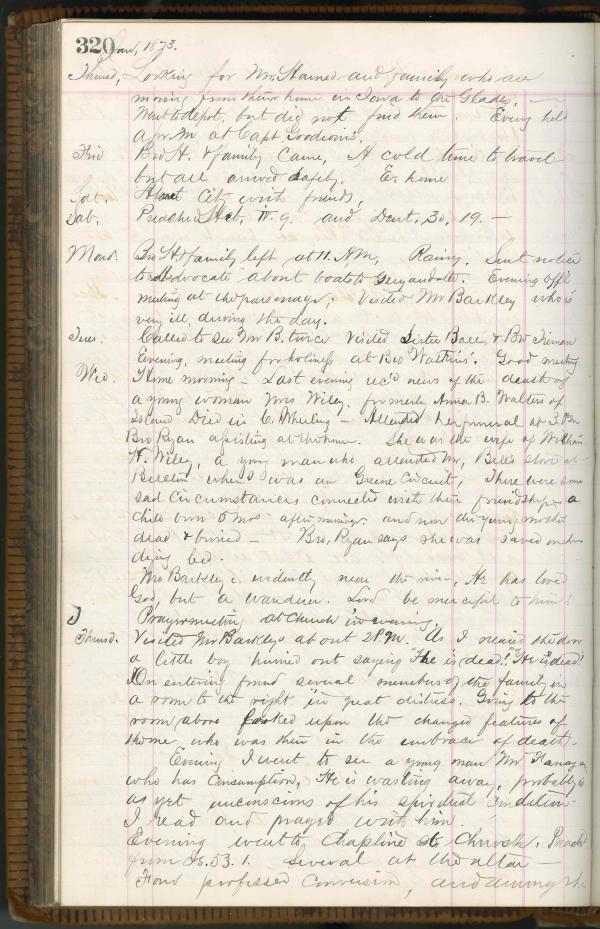 320 Jan, 1873.
Thurs, Looking for Mr. Hained and family who are
moving from their home in Iowa to the Glades,
Went to depot, but did not find them. Every held
a pr. m at Capt Goodwins.
Frid Bro H. & family came, A cold time to travel
but all arrived safely. Ev. home
Sat. About City with friends,
Sab. Preached Matt, 11. 9. and Deut, 30, 19. —
Mond. Bro H & family left at 11. AM, Rainy. Sent notice
to Advocate about boats to Guyandotte. Evening Off'l
meeting at the parsonage; Visited Mr Barkley who is
very ill, during the day.
Tues. Called to see Mr B. twice Visited Sister Ball & Bro
Evening, meeting for holiness at Bro Watkins'. Good meeting
Wed. Home morning — Last evening rec'd news of the death of
a young woman Mrs Wiley formerly Anna B. Walters of
Island Died in C. Wheeling — Attended her funeral at 3. Pm
Bro Ryan assisting at the home. She was the wife of William
H. Wiley, a young man who attended Mr, Bell's store at
when I was on Greene Circuit, There were some
sad circumstances connected with their friendship a
child born 5 mos after marriage and now the young mother
dead & buried — Bro, Ryan says she was saved on her
dying bed.
Mr Barkley is evidently near the river, He has loved
God, but a wanderer. Lord be merciful to him!
Prayermeeting at Church in evening.
Thursd. Visited Mr Barkleys about 2 P.M. As I neared the door
a little boy hurried out saying "He is dead!" "He is dead!"
On entering found several members of the family in
a room to the right in great distress. Going to the
room above looked upon the changed features of
the one who was then in the embrace of death.
Evening I went to see a young man Mr Flanagan
who has Consumption, He is wasting away, probably is
as yet unconscious of his spiritual condition.
I read and prayed with him.
Evening went to Chapline St Church. Preach
from Is. 53. 1. Several at the altar —
Four professed conversion, and among the